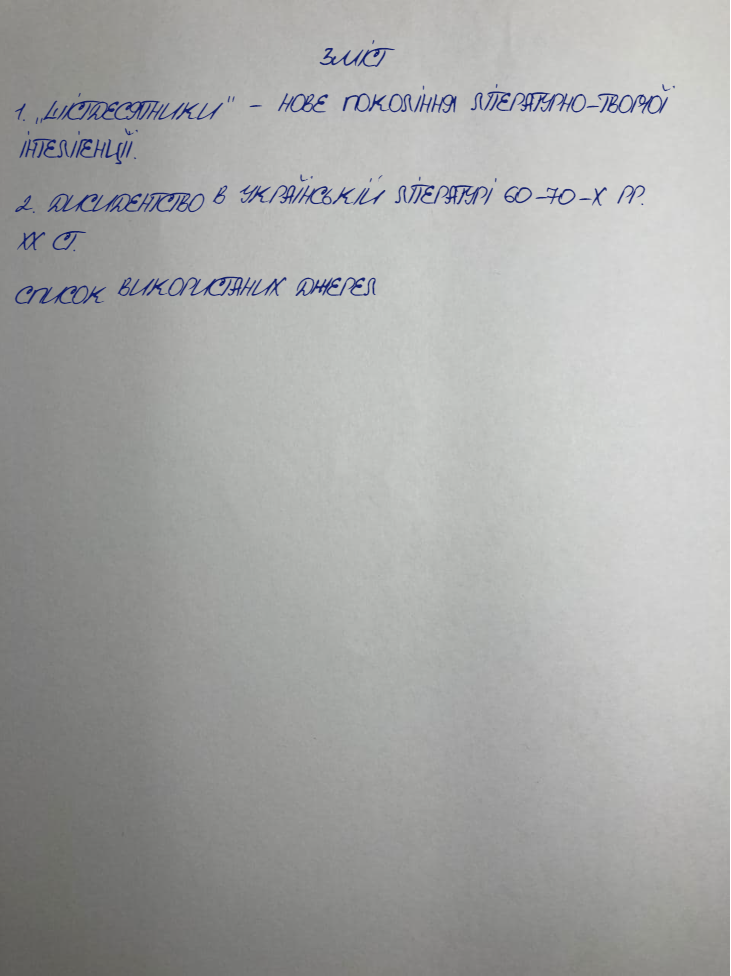 ЗМІСТ
1. „ШІСТДЕСЯТНИКИ" – НОВЕ ПОКОЛІННЯ ЛІТЕРАТУРНО–ТВОРЧОЇ
ІНТЕЛІГЕНЦІЇ.
2. ДИСИДЕНТСТВО В УКРАЇНСЬКІЙ ЛІТЕРАТУРІ 60–70–Х РР.
ХХ СТ.
СПИСОК ВИКОРИСТАНИХ ДЖЕРЕЛ